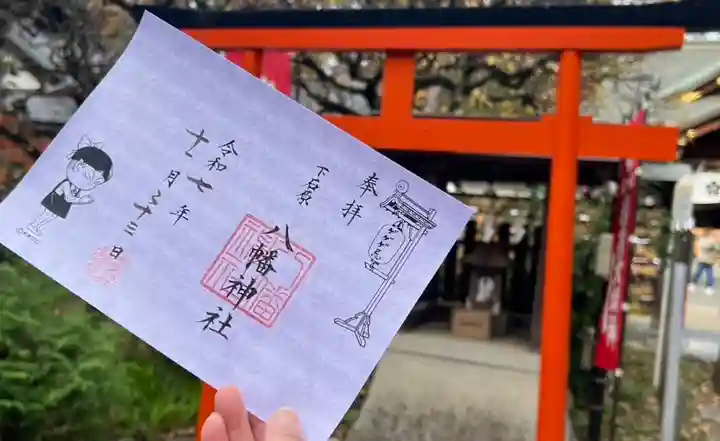 奉拝
下石原
八幡神社
令和七年
十一月二十三日